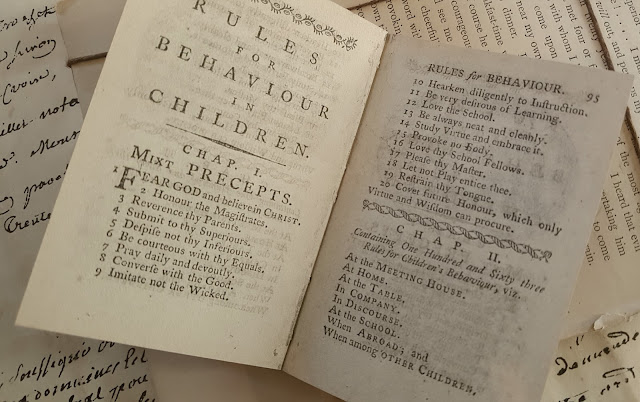 RULES
FOR
BEHAVIOUR
IN
CHILDREN.
CHAP. I.
MIXT PRECEPTS.
1 FEAR GOD and believe in CHRIST.
2 Honour the Magiſtrates.
3 Reverence thy Parents.
4 Submit to thy Superiours.
5 Deſpiſe not thy Inferiours.
6 Be courteous with thy Equals.
7 Pray daily and devoutly.
8 Converſe with the Good.
9 Imitate not the Wicked.
RULES for BEHAVIOUR. 95
10 Hearken diligently to Inſtruction.
11 Be very deſirous of Learning.
12 Love the School.
13 Be always neat and cleanly.
14 Study Virtue and embrace it.
15 Provoke no Body.
16 Love thy School Fellows.
17 Pleaſe thy Maſter.
18 Let not Play entice thee.
19 Reſtrain thy Tongue.
20 Covet future Honour, which only
Virtue and Wiſdom can procure.
CHAP. II.
Containing One Hundred and Sixty three
Rules for Children's Behaviour, viz.
At the MEETING HOUSE.
At HOME.
At the TABLE,
In COMPANY.
In DISCOURSE.
At the SCHOOL.
When ABROAD; and
When among OTHER CHILDREN,
cheerful
courageous
dinner.
near my own
with whom I
met four or
I heard that
to come